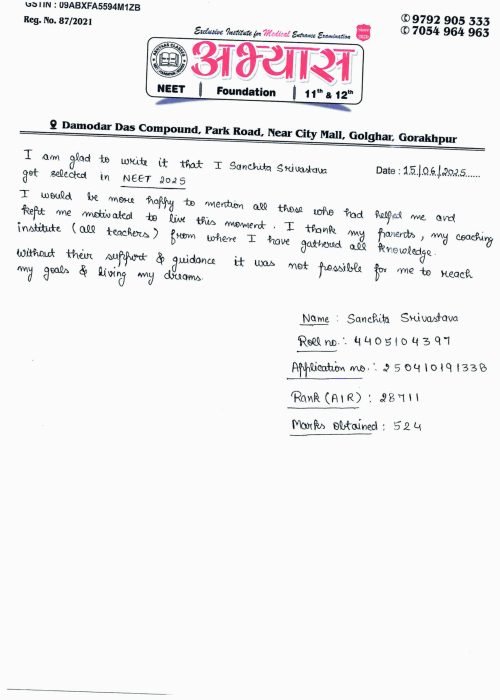 GSTIN : 09ABXFA5594M1ZB
Reg. No. 87/2021
✆ 9792 905 333
✆ 7054 964 963
Exclusive Institute for Medical Entrance Examination
अभ्यास
NEET | Foundation | 11th & 12th
Damodar Das Compound, Park Road, Near City Mall, Golghar, Gorakhpur
Date : 15/06/2025......
I am glad to write it that I Sanchita Srivastava
got selected in NEET 2025
I would be more happy to mention all those who had helped me and
kept me motivated to live this moment. I thank my parents, my coaching
institute (all teachers) from where I have gathered all knowledge.
Without their support & guidance it was not possible for me to reach
my goals & living my dreams.
Name : Sanchita Srivastava
Roll no. : 4405104397
Application no. : 250410191338
Rank (AIR) : 28711
Marks obtained : 524